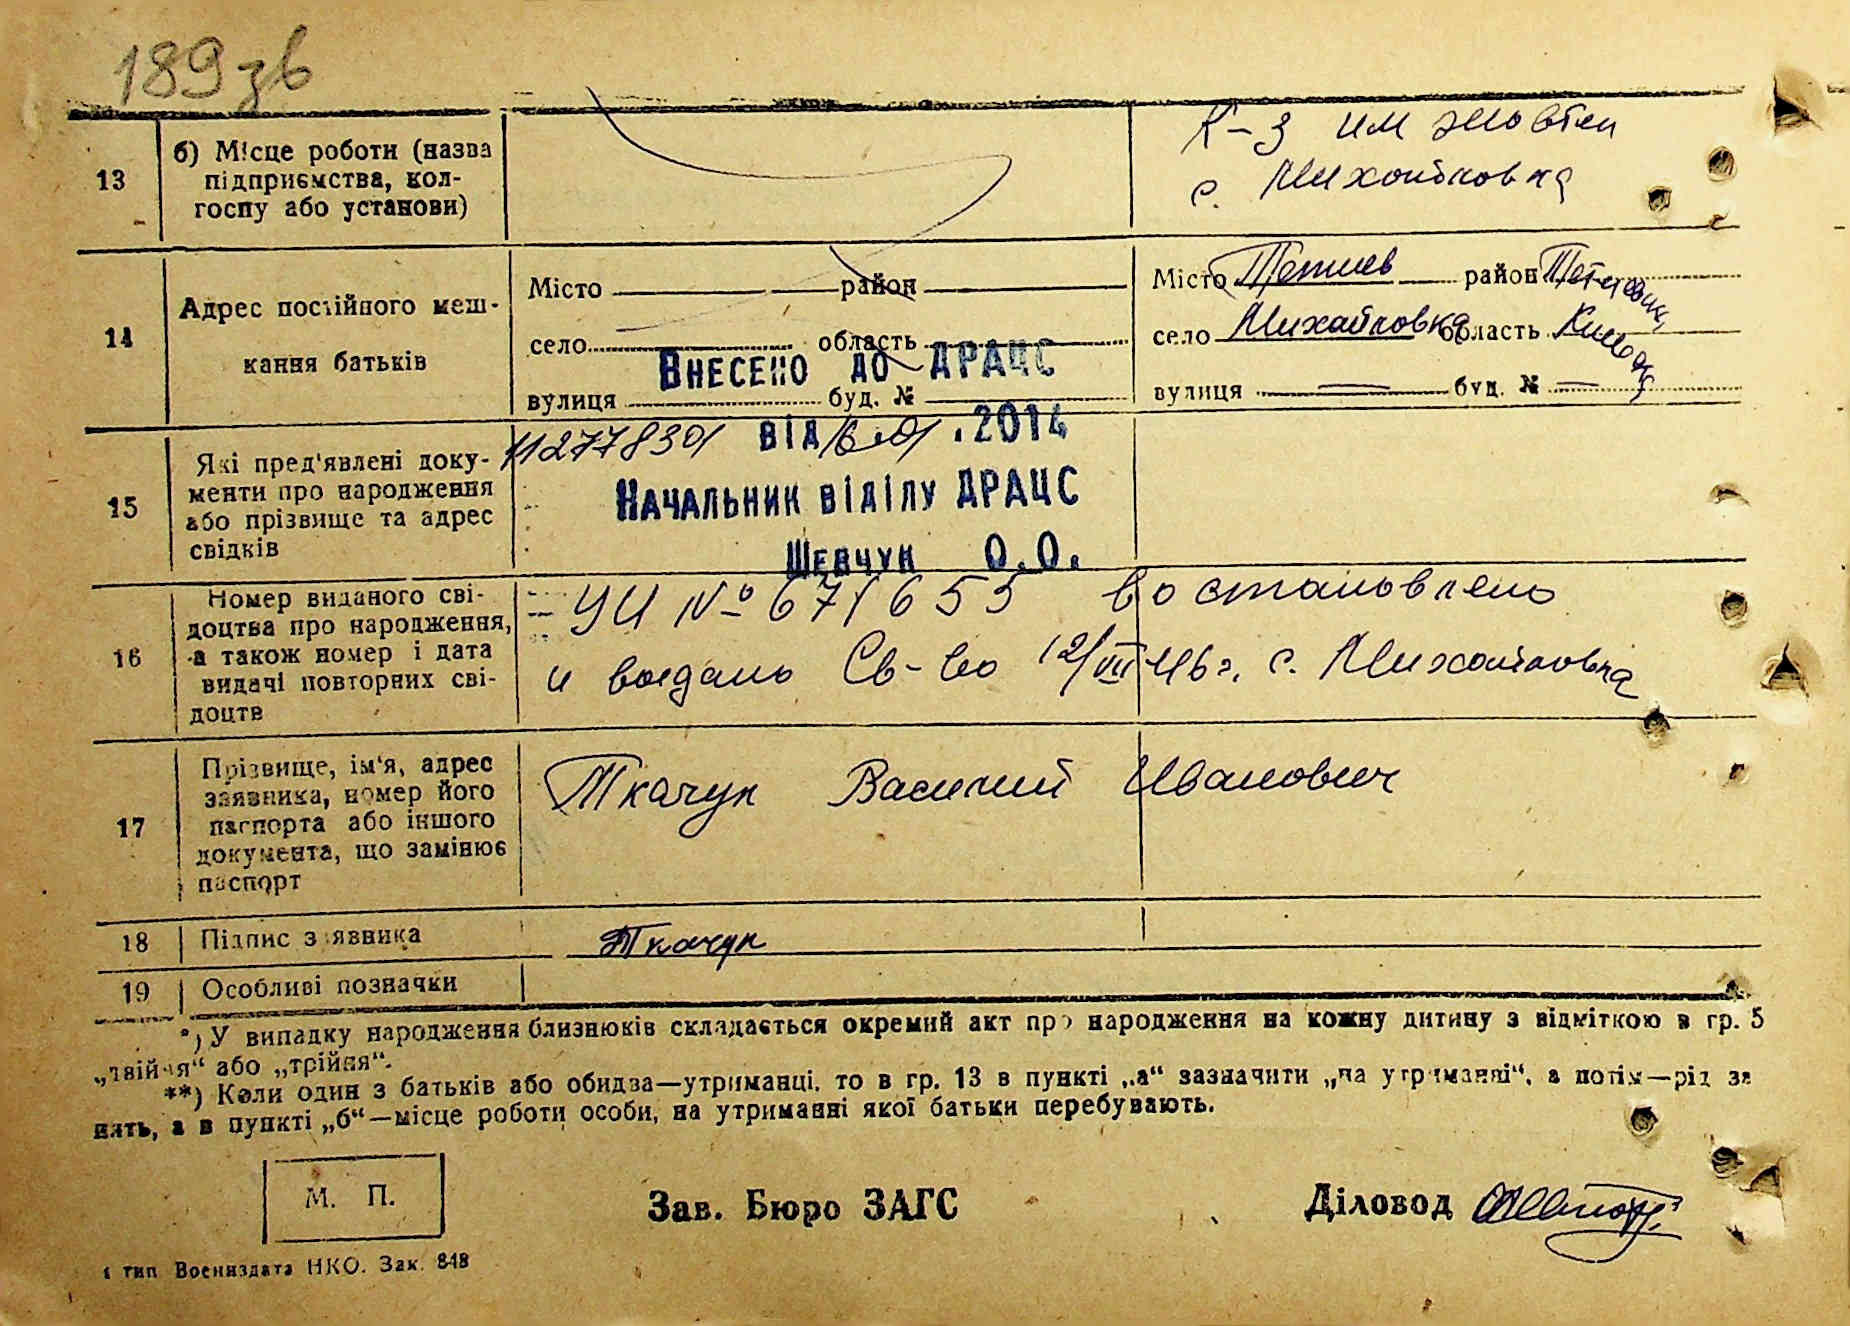 189 зв
13
б) Місце роботи (назва
підприємства, кол-
госпу або установи)
К-з им Жовтня
с. Михайловка
14
Адрес постійного меш-
кання батьків
Місто район
село область
вулиця буд. №
Місто Тетиев район Тетиевск.
село Михайловка область Киевская
вулиця — буд. № —
Внесено до ДРАЦС
від 16.01.2014
Начальник відділу ДРАЦС
Шевчук О.О.
15
Які пред'явлені доку-
менти про народження
або прізвище та адрес
свідків
112778301
16
Номер виданого сві-
доцтва про народження,
а також номер і дата
видачі повторних сві-
доцтв
УИ № 671655 востановлено
и выдано Св-во 12/VIII 46 г. с. Михайловка
17
Прізвище, ім'я, адрес
заявника, номер його
паспорта або іншого
документа, що замінює
паспорт
Ткачук Василий Иванович
18
Підпис заявника
Ткачук
19
Особливі позначки
*) У випадку народження близнюків складається окремий акт про народження на кожну дитину з відміткою в гр. 5
„двійня“ або „трійня“.
**) Коли один з батьків або обидва—утриманці, то в гр. 13 в пункті „а“ зазначити „на утриманні“, а потім—рід за
нять, а в пункті „б“—місце роботи особи, на утриманні якої батьки перебувають.
М. П.
Зав. Бюро ЗАГС
Діловод
1 тип Воениздата НКО. Зак. 848